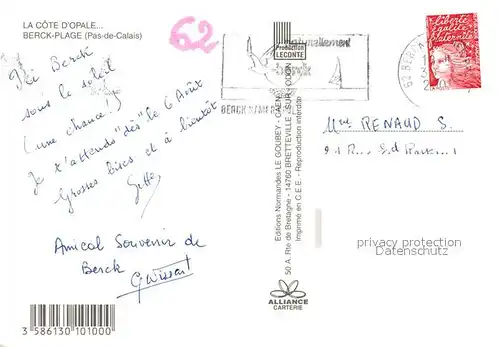 LA CÔTE D'OPALE...
BERCK-PLAGE (Pas-de-Calais)
62
Ici Berck
sous le soleil
(une chance!)
Je t'attends "dès" le 6 Août
Grosses bises et à bientôt
Amical Souvenir de
Berck
3 586130 101000
Editions Normandes LE GOUBEY - CAEN
50 A. Rte de Bretagne - 14760 BRETTEVILLE - SUR - ODON
Imprimé en C.E.E. - Reproduction interdite
Production
LECONTE
naturellement
berck
BERCK
ALLIANCE
CARTERIE
62 BERCK
liberté
égalité
fraternité
LA POSTE
Mme RENAUD S.
privacy protection
Datenschutz